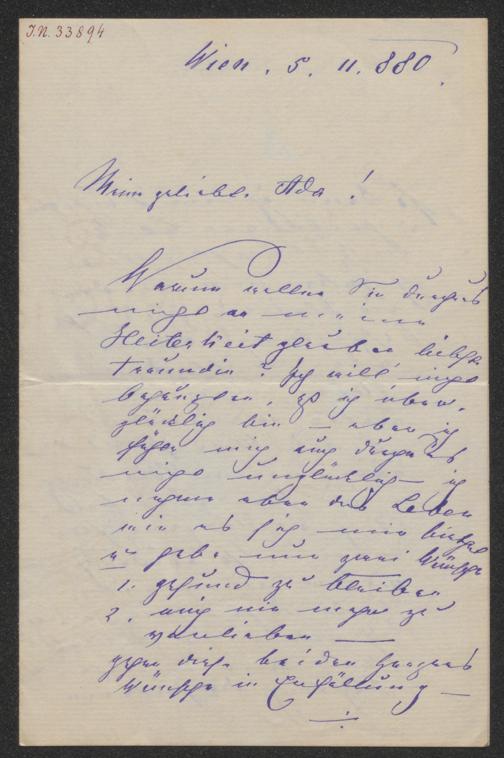 J.N. 33894
Wien. 5. 11. 880.
Meine geliebte Ada!
Warum wollen Sie durchaus
nicht an meine
Heiterkeit glauben liebste
Freundin? Ich will nicht
behaupten, daß ich über-
glücklich bin – aber ich
fühle mich auch durchaus
nicht unglücklich – ich
nehme eben das Leben
wie es sich mir bietet
u habe nur zwei Wünsche
1. gesund zu bleiben
2. mich nie mehr zu
verlieben —
gehen diese beiden Herzens
Wünsche in Erfüllung —